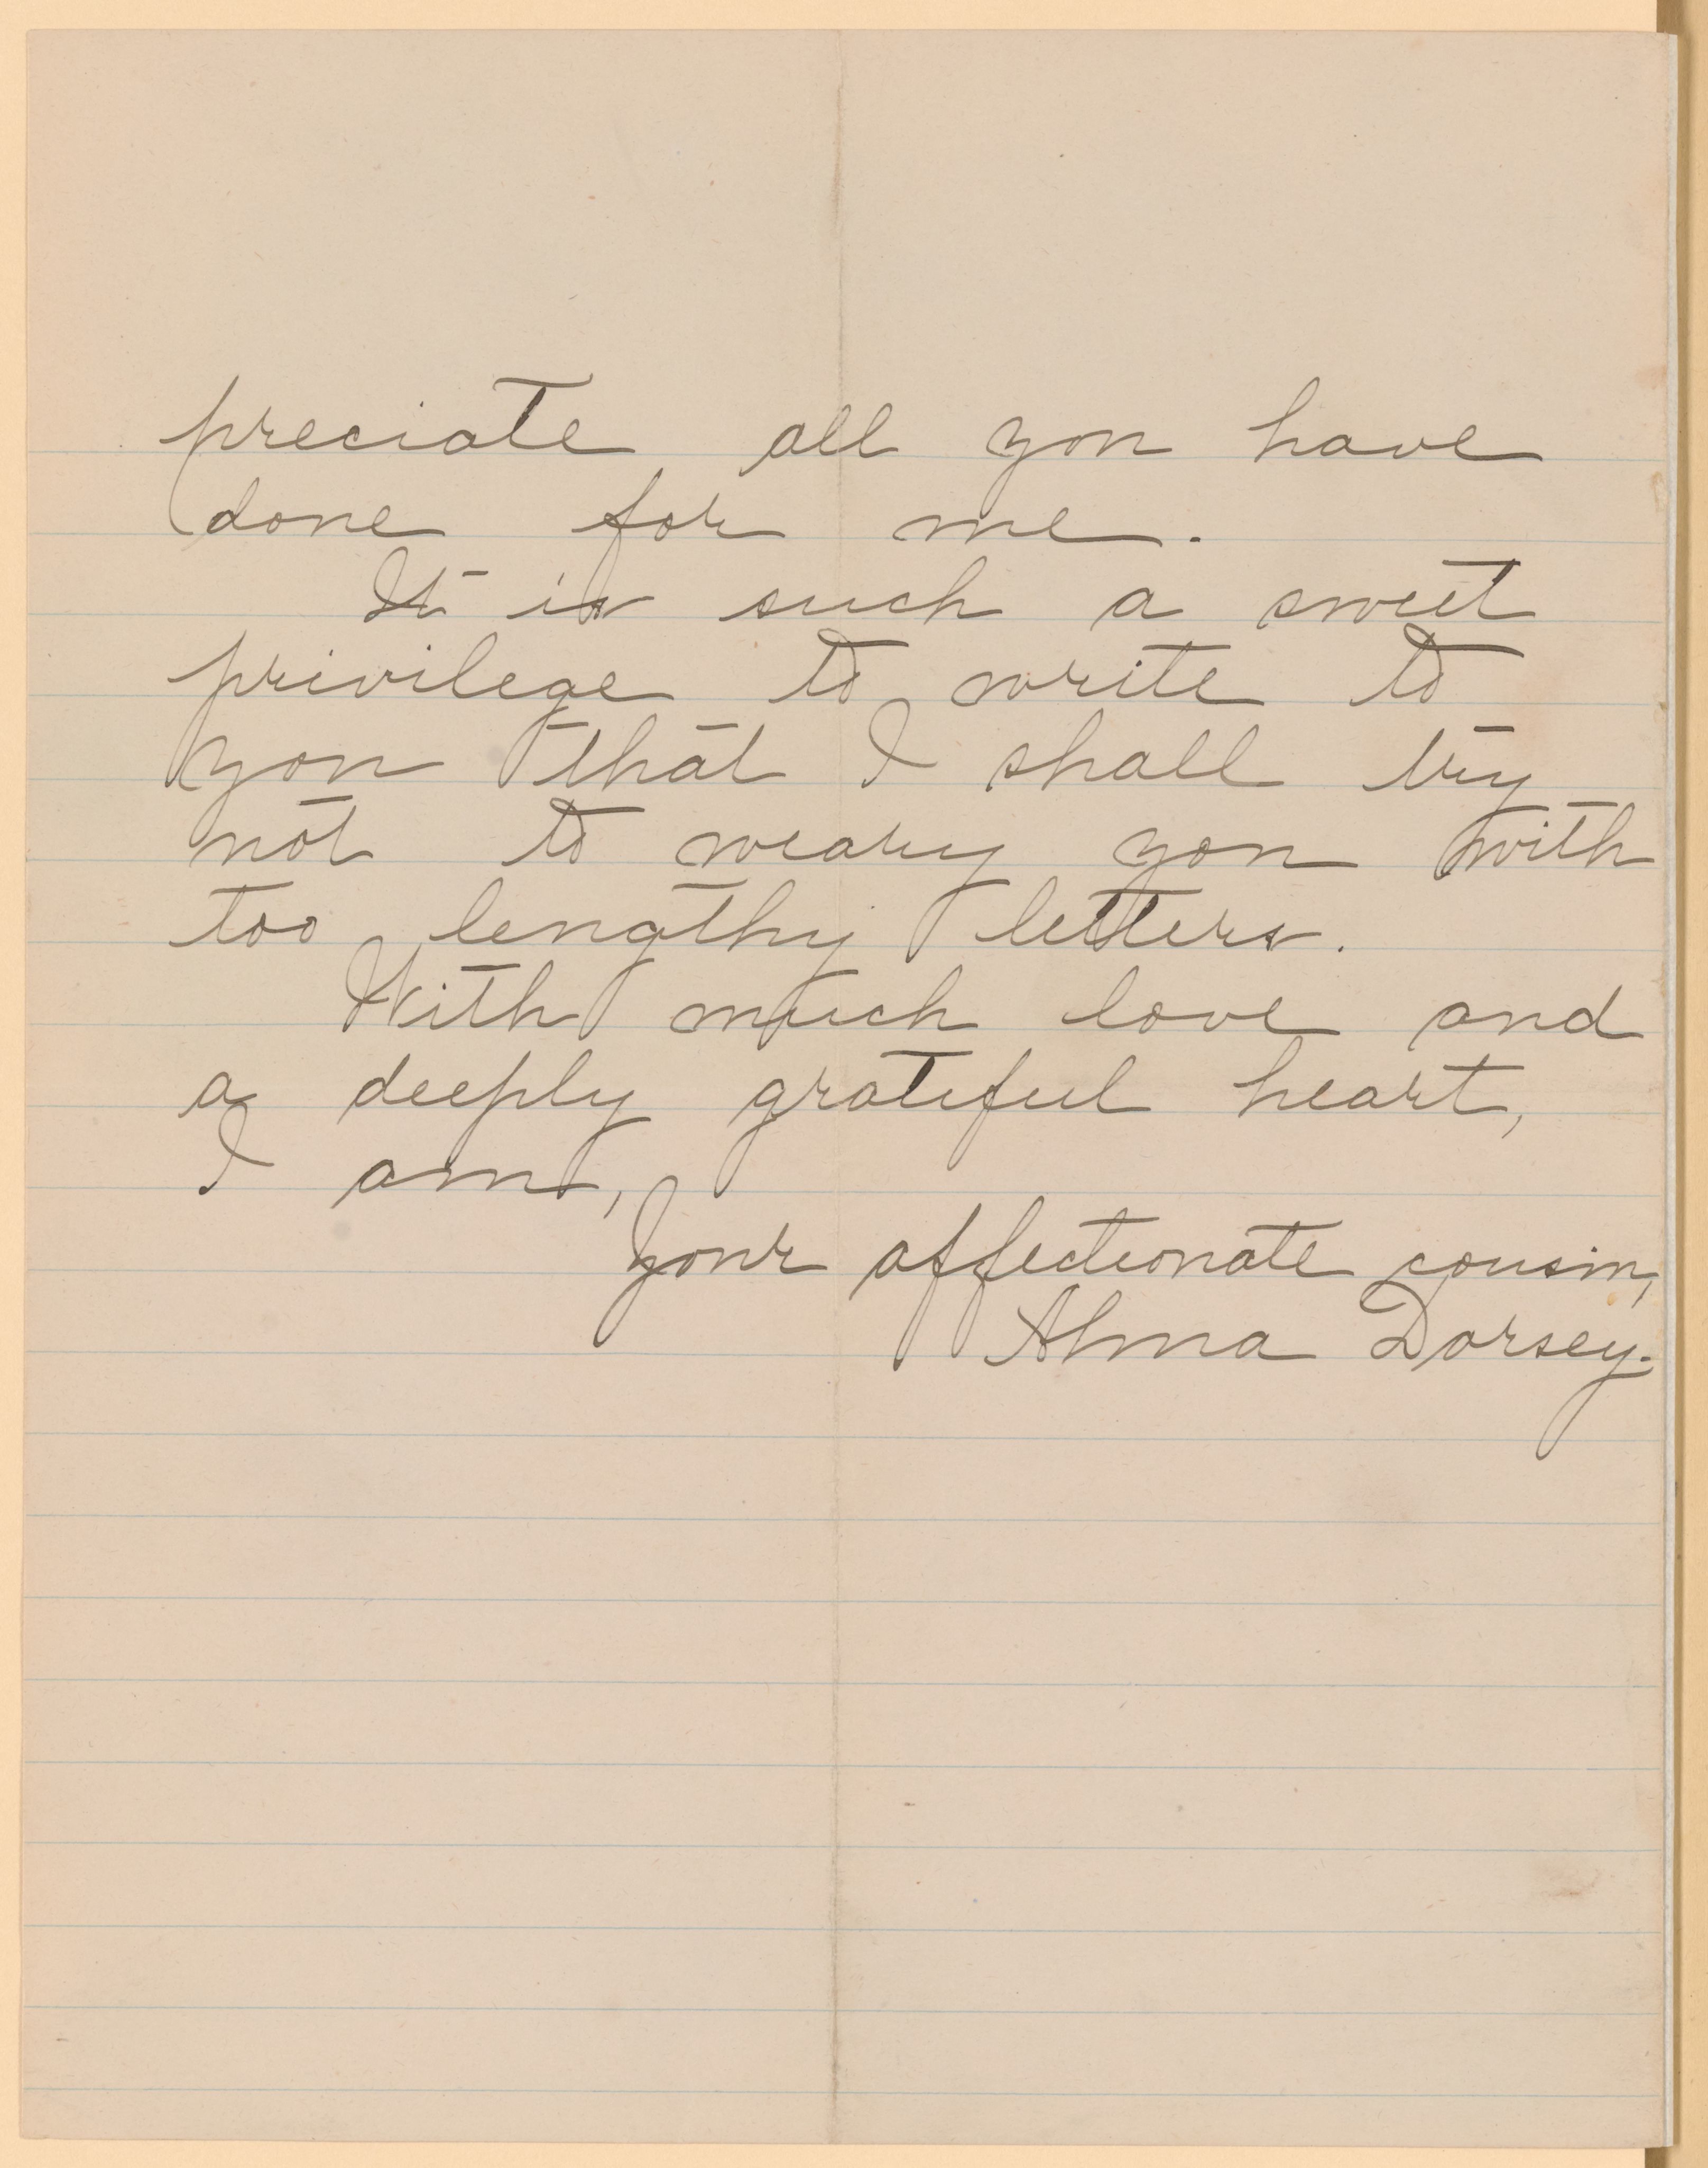 preciate all you have
done for me.
It is such a sweet
privilege to write to
you that I shall try
not to weary you with
too lengthy letters.
With much love and
a deeply grateful heart,
I am,
Your affectionate cousin,
Alma Dorsey.